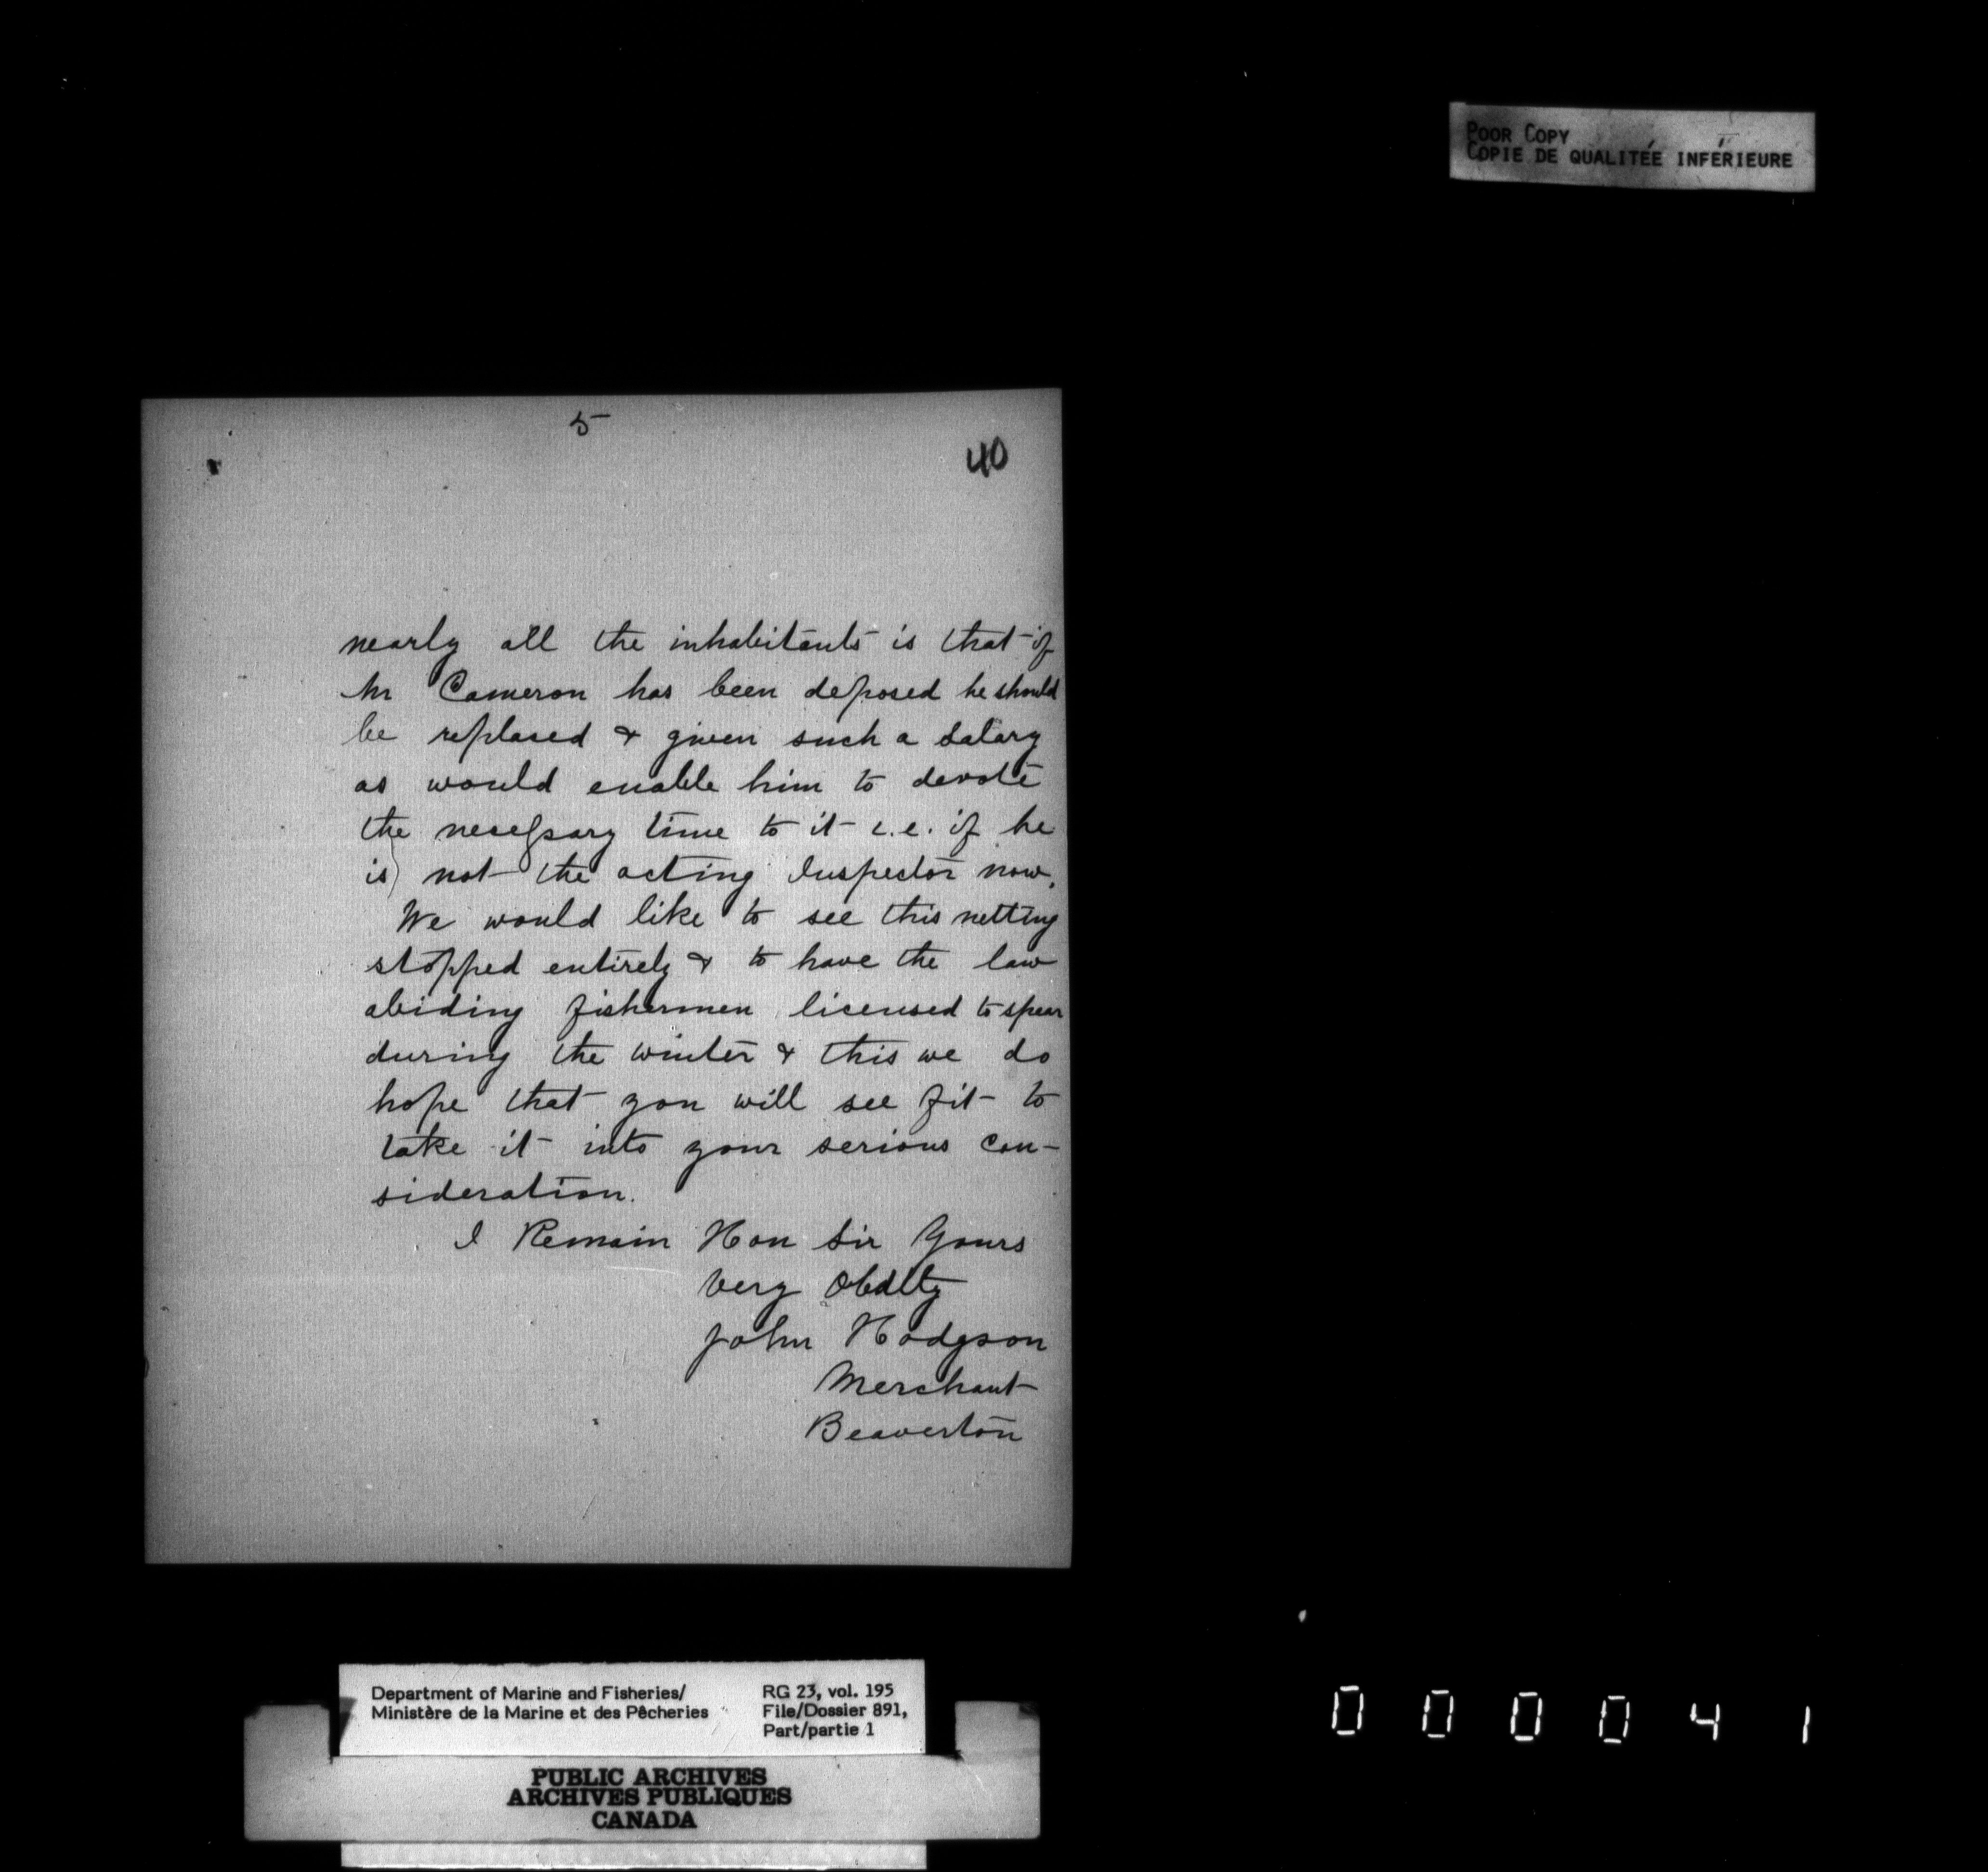 POOR COPY
COPIE DE QUALITÉE INFÉRIEURE
5
40
nearly all the inhabitants is that if
Mr Cameron has been deposed he should
be replaced & given such a salary
as would enable him to devote
the necessary time to it i.e. if he
is not the acting Inspector now.
We would like to see this netting
stopped entirely & to have the law
abiding fishermen licensed to spear
during the winter & this we do
hope that you will see fit to
take it into your serious con-
sideration.
I Remain Hon Sir Yours
Very Obdtly
John Hodgson
Merchant
Beaverton
Department of Marine and Fisheries/
Ministère de la Marine et des Pêcheries
RG 23, vol. 195
File/Dossier 891,
Part/partie 1
PUBLIC ARCHIVES
ARCHIVES PUBLIQUES
CANADA
000041